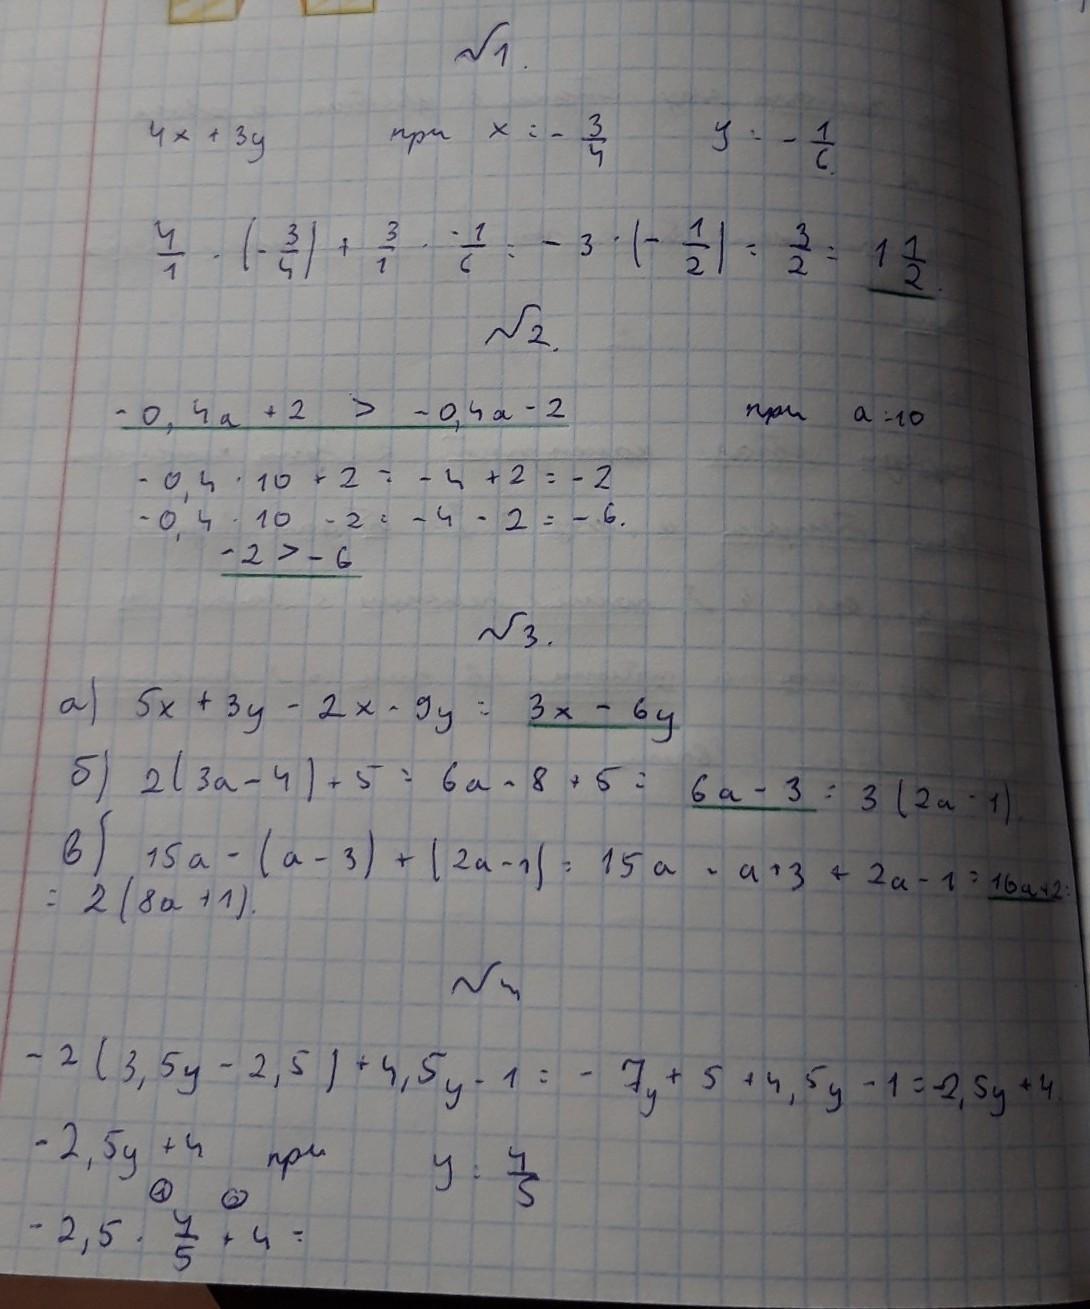 №1.
4x + 3y при x = - 3/4 y = - 1/6.
4/1 · (- 3/4) + 3/1 · -1/6 = - 3 · (- 1/2) = 3/2 = 1 1/2.
№2.
-0,4a + 2 > -0,4a - 2 при a = 10
-0,4 · 10 + 2 = -4 + 2 = -2
-0,4 · 10 - 2 = -4 - 2 = -6.
-2 > -6
№3.
а) 5x + 3y - 2x - 9y = 3x - 6y
б) 2(3a - 4) + 5 = 6a - 8 + 5 = 6a - 3 = 3(2a - 1).
в) 15a - (a - 3) + (2a - 1) = 15a - a + 3 + 2a - 1 = 16a + 2 =
= 2(8a + 1).
№4
-2(3,5y - 2,5) + 4,5y - 1 = -7y + 5 + 4,5y - 1 = -2,5y + 4
-2,5y + 4 при y = 4/5
1 2
-2,5 · 4/5 + 4 =